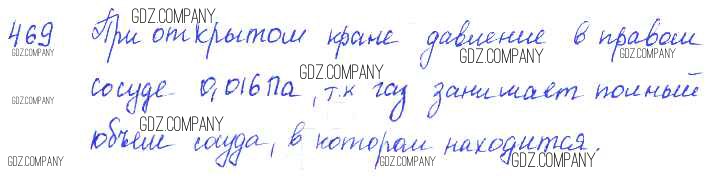 GDZ.COMPANY
469 При открытом кране давление в правом
GDZ.COMPANY GDZ.COMPANY GDZ.COMPANY
GDZ.COMPANY
сосуде 0,016 Па, т.к газ занимает полный
GDZ.COMPANY
GDZ.COMPANY
объем сосуда, в котором находится.
GDZ.COMPANY GDZ.COMPANY GDZ.COMPANY